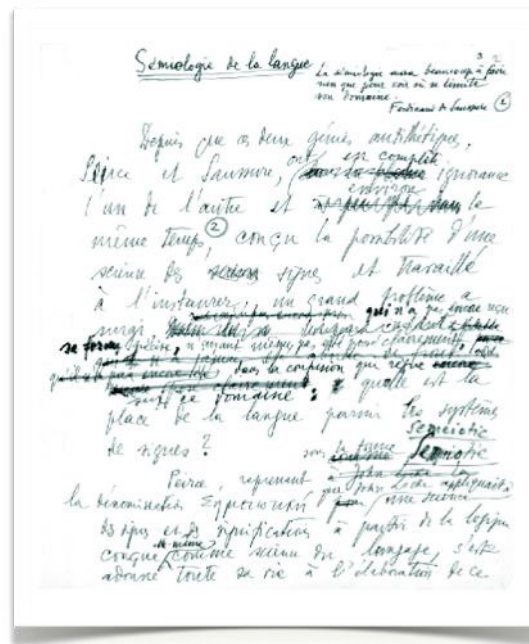 Sémiologie de la langue
La sémiologie aura beaucoup à faire
rien que pour voir où se limite
son domaine.
Ferdinand de Saussure (1)
Depuis que ces deux génies antithétiques,
Peirce et Saussure, ont en complète ignorance
l'un de l'autre et environ le
même temps (2), conçu la possibilité d'une
science des signes et travaillé
à l'instaurer, un grand problème a
surgi, qui n'a pas encore reçu
sa forme
dans la confusion que règne
sur ce domaine : quelle est la
place de la langue parmi les systèmes
de signes ?
semeiotic
sous la forme Semiotic
Peirce, reprenant à John Locke
que John Locke appliquait
la dénomination Σημειωτική une science
des signes et des significations à partir de la logique
conçue elle-même comme science du langage, s'est
adonné toute sa vie à l'élaboration de ce